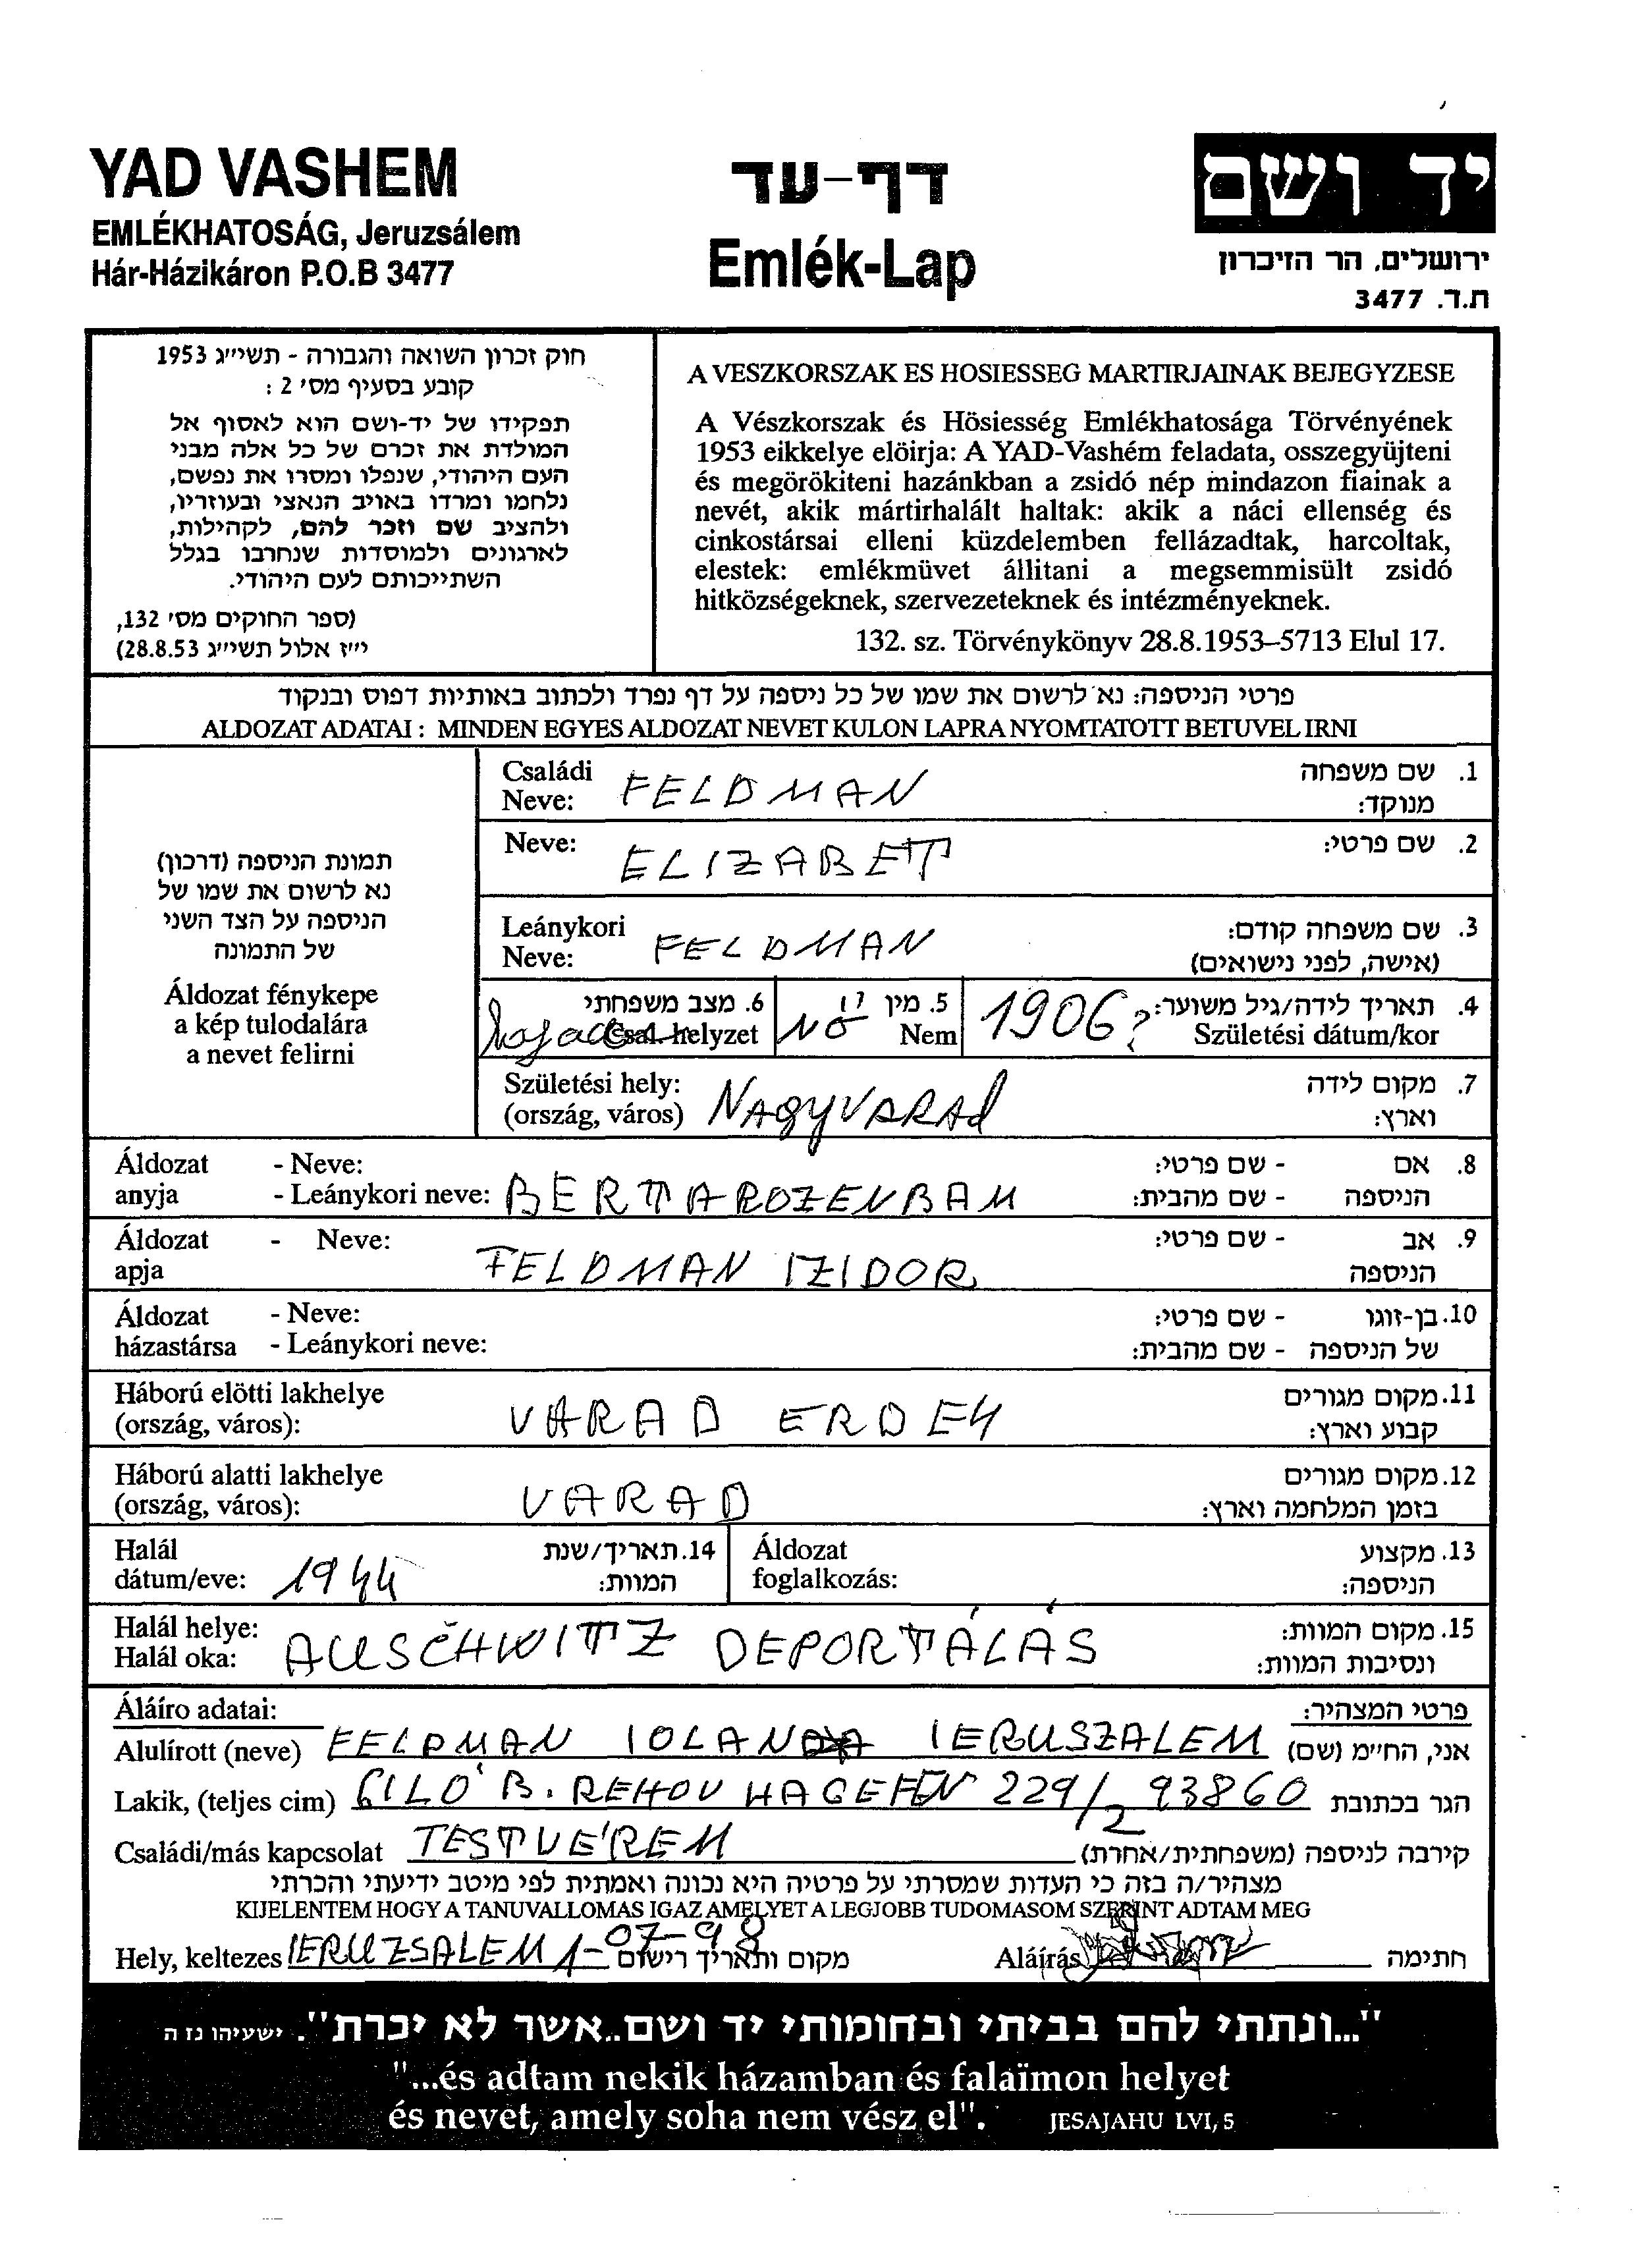 YAD VASHEM
EMLÉKHATOSÁG, Jeruzsálem
Hár-Házikáron P.O.B 3477
דף-עד
Emlék-Lap
יד ושם
ירושלים, הר הזיכרון
ת.ד. 3477
חוק זכרון השואה והגבורה - תשי״ג 1953
קובע בסעיף מס׳ 2 :
תפקידו של יד-ושם הוא לאסוף אל
המולדת את זכרם של כל אלה מבני
העם היהודי, שנפלו ומסרו את נפשם,
נלחמו ומרדו באויב הנאצי ובעוזריו,
ולהציב שם וזכר להם, לקהילות,
לארגונים ולמוסדות שנחרבו בגלל
השתייכותם לעם היהודי.
(ספר החוקים מס׳ 132,
י״ז אלול תשי״ג 28.8.53)
A VESZKORSZAK ES HOSIESSEG MARTIRJAINAK BEJEGYZESE
A Vészkorszak és Hösiesség Emlékhatosága Törvényének
1953 eikkelye elöirja: A YAD-Vashém feladata, osszegyüjteni
és megörökiteni hazánkban a zsidó nép mindazon fiainak a
nevét, akik mártirhalált haltak: akik a náci ellenség és
cinkostársai elleni küzdelemben fellázadtak, harcoltak,
elestek: emlékmüvet állitani a megsemmisült zsidó
hitközségeknek, szervezeteknek és intézményeknek.
132. sz. Törvénykönyv 28.8.1953–5713 Elul 17.
פרטי הניספה: נא לרשום את שמו של כל ניספה על דף נפרד ולכתוב באותיות דפוס ובנקוד
ALDOZAT ADATAI : MINDEN EGYES ALDOZAT NEVET KULON LAPRA NYOMTATOTT BETUVEL IRNI
תמונת הניספה (דרכון)
נא לרשום את שמו של
הניספה על הצד השני
של התמונה
Áldozat fénykepe
a kép tulodalára
a nevet felirni
Családi
Neve: FELDMAN
1. שם משפחה
מנוקד:
Neve: ELIZABET
2. שם פרטי:
Leánykori
Neve: FELDMAN
3. שם משפחה קודם:
(אישה, לפני נישואים)
6. מצב משפחתי
Csal. helyzet
5. מין
Nem NÖ
1906?
4. תאריך לידה/גיל משוער:
Születési dátum/kor
Születési hely:
(ország, város) NAGYVARAd
7. מקום לידה
וארץ:
Áldozat - Neve:
anyja - Leánykori neve: BERTA ROZENBAM
8. אם - שם פרטי:
הניספה - שם מהבית:
Áldozat - Neve:
apja FELDMAN IZIDOR
9. אב - שם פרטי:
הניספה
Áldozat - Neve:
házastársa - Leánykori neve:
10. בן-זוגו - שם פרטי:
של הניספה - שם מהבית:
Háború elötti lakhelye
(ország, város): VARAD ERDEY
11. מקום מגורים
קבוע וארץ:
Háború alatti lakhelye
(ország, város): VARAD
12. מקום מגורים
בזמן המלחמה וארץ:
Halál
dátum/eve: 1944
14. תאריך/שנת
המוות:
Áldozat
foglalkozás:
13. מקצוע
הניספה:
Halál helye:
Halál oka: AUSCHWITZ DEPORTÁLÁS
15. מקום המוות:
ונסיבות המוות:
Áláíro adatai:
פרטי המצהיר:
Alulírott (neve) FELDMAN IOLAN IERUSZALEM אני, החי״מ (שם)
Lakik, (teljes cim) GILO B. REHOV HAGEFEN 229/2 93860 הגר בכתובת
Családi/más kapcsolat TESTVÉREM קירבה לניספה (משפחתית/אחרת)
מצהיר/ה בזה כי העדות שמסרתי על פרטיה היא נכונה ואמתית לפי מיטב ידיעתי והכרתי
KIJELENTEM HOGY A TANUVALLOMAS IGAZ AMELYET A LEGJOBB TUDOMASOM SZERINT ADTAM MEG
Hely, keltezes IERUZSALEM 1-07-98 מקום ותאריך רישום
Aláírás חתימה
"...ונתתי להם בביתי ובחומותי יד ושם..אשר לא יכרת". ישעיהו נז ה
"...és adtam nekik házamban és falaïmon helyet
és nevet, amely soha nem vész el". JESAJAHU LVI, 5